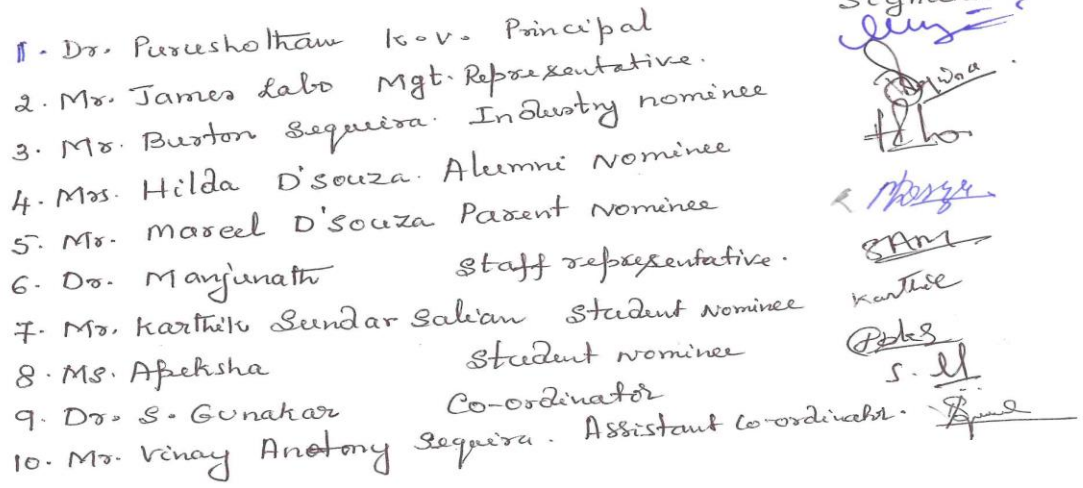 1. Dr. Purushotham K.V. Principal
2. Mr. James Labo Mgt. Representative.
3. Mr. Burton Sequeira. Industry nominee
4. Mrs. Hilda D'Souza. Alumni Nominee
5. Mr. Marcel D'Souza Parent Nominee
6. Dr. Manjunath Staff representative.
7. Mr. Karthik Sundar Salian Student Nominee Karthik
8. Ms. Apeksha Student Nominee
9. Dr. S. Gunakar Co-ordinator
10. Mr. Vinay Anotony Sequira. Assistant Co-ordinator.